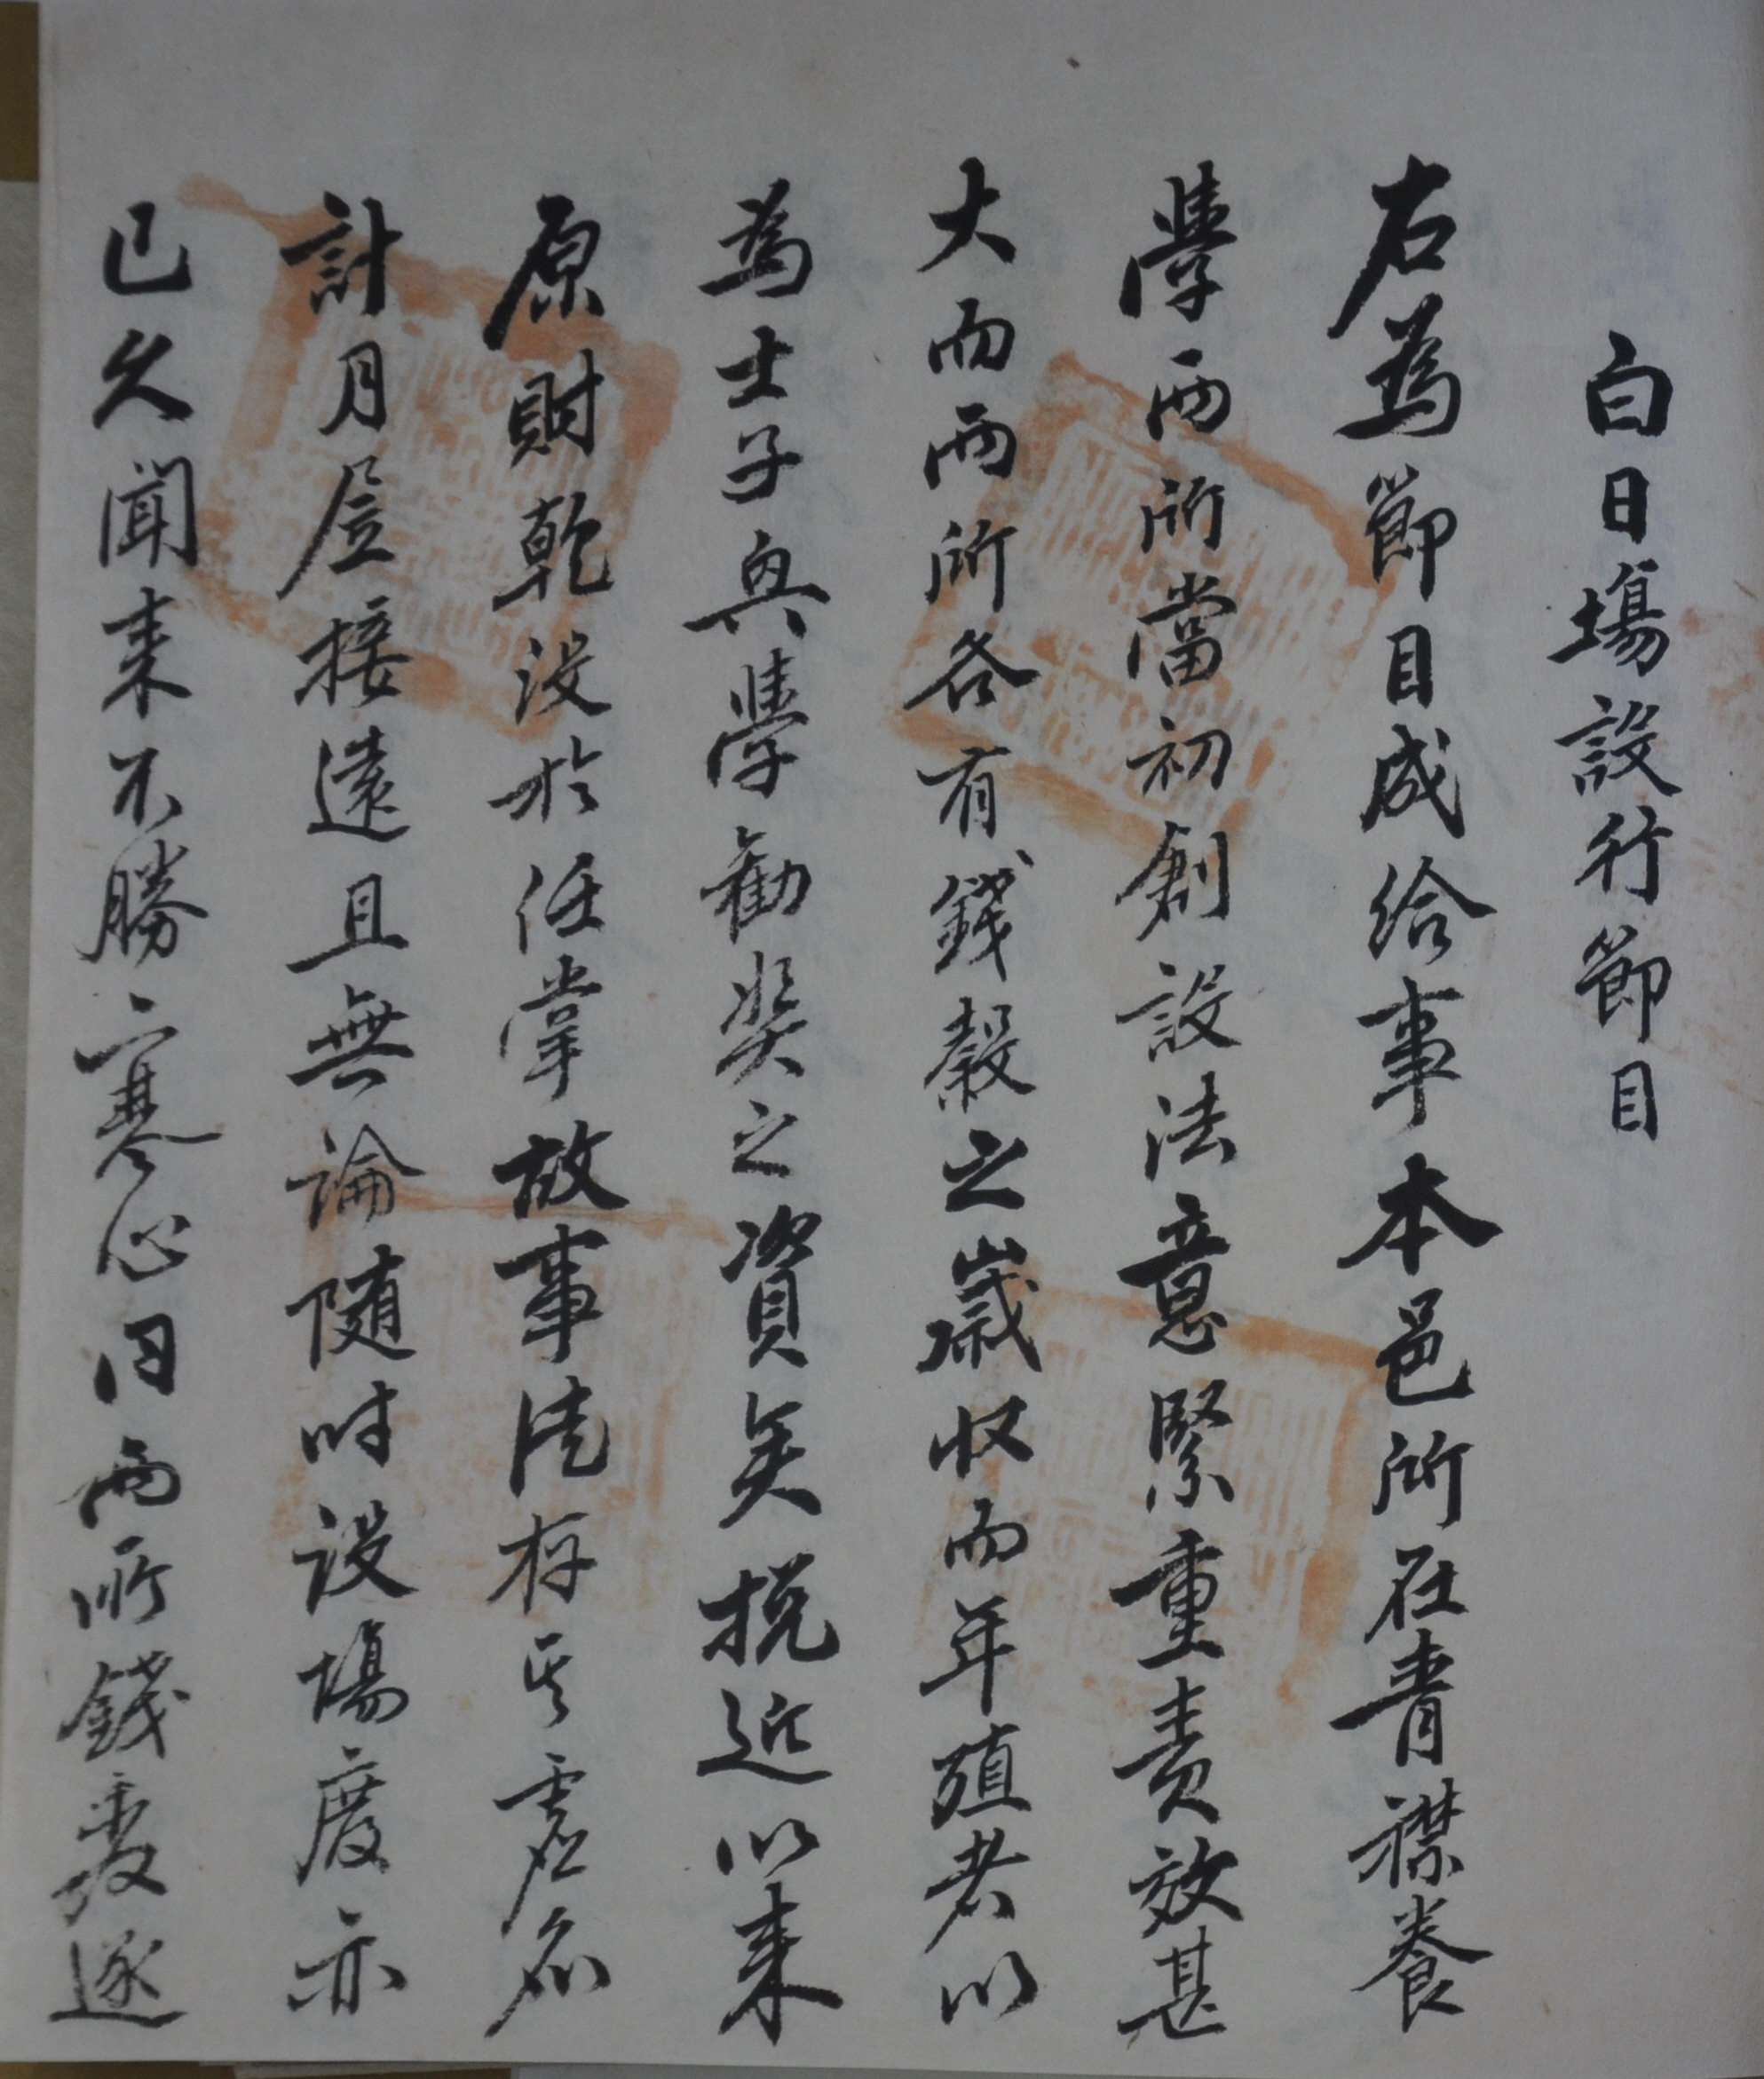 白日場設行節目
右為節目成給事本邑所在青襟養
學兩所當初創設法意緊重責效甚
大而兩所各有錢穀之歲收而年殖者以
為士子興學勸奬之資矣挽近以來
原財乾沒於任掌故事徒存其虛名
計月居接遠且無論隨時設場廢亦
已久聞来不勝寒心同兩所錢穀逐